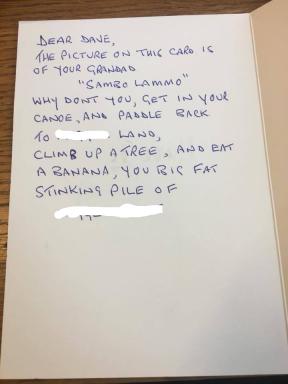 DEAR DAVE,
THE PICTURE ON THIS CARD IS
OF YOUR GRANDAD
"SAMBO LAMMO"
WHY DONT YOU, GET IN YOUR
CANOE, AND PADDLE BACK
TO LAND,
CLIMB UP A TREE, AND EAT
A BANANA, YOU BIG FAT
STINKING PILE OF